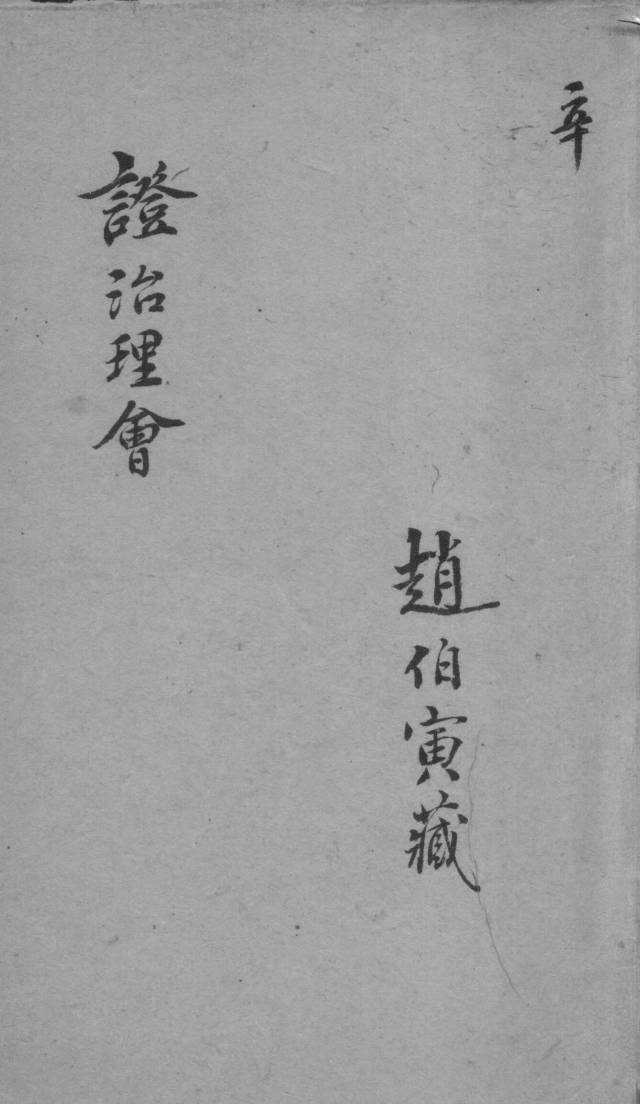 辛
趙伯寅藏
證治理會